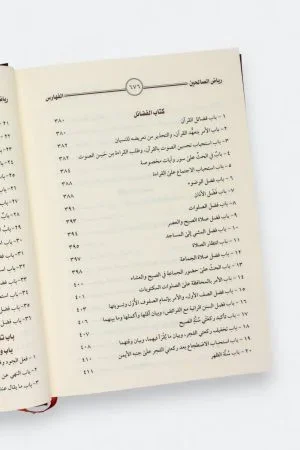 رياض الصالحين ٦٧٦ الفهارس
كتاب الفضائل ٣٨٠
١ - باب فضائل القرآن ٣٨٠
٢ - باب الأمر بتعهد القرآن، والتحذير من تعريضه للنسيان ٣٨٢
٣ - باب استحباب تحسين الصوت بالقرآن، وطلب القراءة من حسن الصوت ٣٨٢
٤ - باب في الحث على سور وآيات مخصوصة ٣٨٤
٥ - باب استحباب الاجتماع على القراءة ٣٨٨
٦ - باب فضل الوضوء ٣٨٨
٧ - باب فضل الأذان ٣٩١
٨ - باب فضل الصلوات ٣٩٣
٩ - باب فضل صلاة الصبح والعصر ٣٩٤
١٠ - باب فضل المشي إلى المساجد ٣٩٥
١١ - باب انتظار الصلاة ٣٩٧
١٢ - باب فضل صلاة الجماعة ٣٩٨
١٣ - باب الحث على حضور الجماعة في الصبح والعشاء ٤٠٠
١٤ - باب الأمر بالمحافظة على الصلوات المكتوبات ٤٠١
١٥ - باب فضل الصف الأول، والأمر بإتمام الصفوف الأول وتسويتها ٤٠٣
١٦ - باب فضل السنن الراتبة مع الفرائض، وبيان أقلها وأكملها وما بينهما ٤٠٥
١٧ - باب تأكيد ركعتي سنة الصبح ٤٠٧
١٨ - باب تخفيف ركعتي الفجر، وبيان ما يقرأ فيهما، وبيان وقتهما ٤٠٨
١٩ - باب استحباب الاضطجاع بعد ركعتي الفجر على جنبه الأيمن
٢٠ - باب سنة الظهر ٤١١